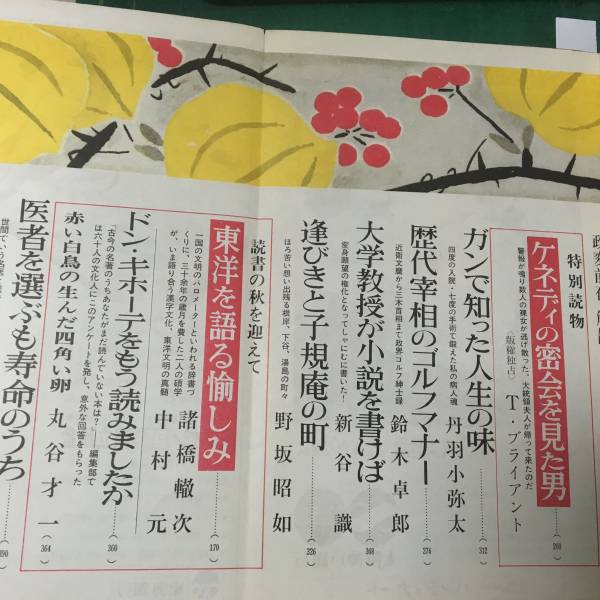 特別読物
ケネディの密会を見た男
警報が鳴り数人の裸女が逃げ散った。大統領夫人が帰って来たのだ
〈版権独占〉
T・ブライアント
260
ガンで知った人生の味
四度の入院・七度の手術で鍛えた私の病人魂
丹羽小弥太
312
歴代宰相のゴルフマナー
近衛文麿から三木首相まで政界ゴルフ紳士録
鈴木卓郎
276
大学教授が小説を書けば
変身願望の権化となってしゃにむに書いた！
新谷識
368
逢びきと子規庵の町
ほろ苦い想い出残る根岸、下谷、湯島の町々
野坂昭如
326
読書の秋を迎えて
東洋を語る愉しみ
一国の文明のバロメーターといわれる辞書づ
くりに、三十余年の歳月を費した二人の碩学
が、いま語り合う漢字文化、東洋文明の真髄
諸橋轍次
中村元
170
ドン・キホーテをもう読みましたか
「古今の名著のうちあなたがまだ読んでいない本は？」——編集部で
は六十人の文化人にこのアンケートを発し、意外な回答をもらった
360
赤い白鳥の生んだ四角い卵
丸谷才一
364
医者を選ぶも寿命のうち
390